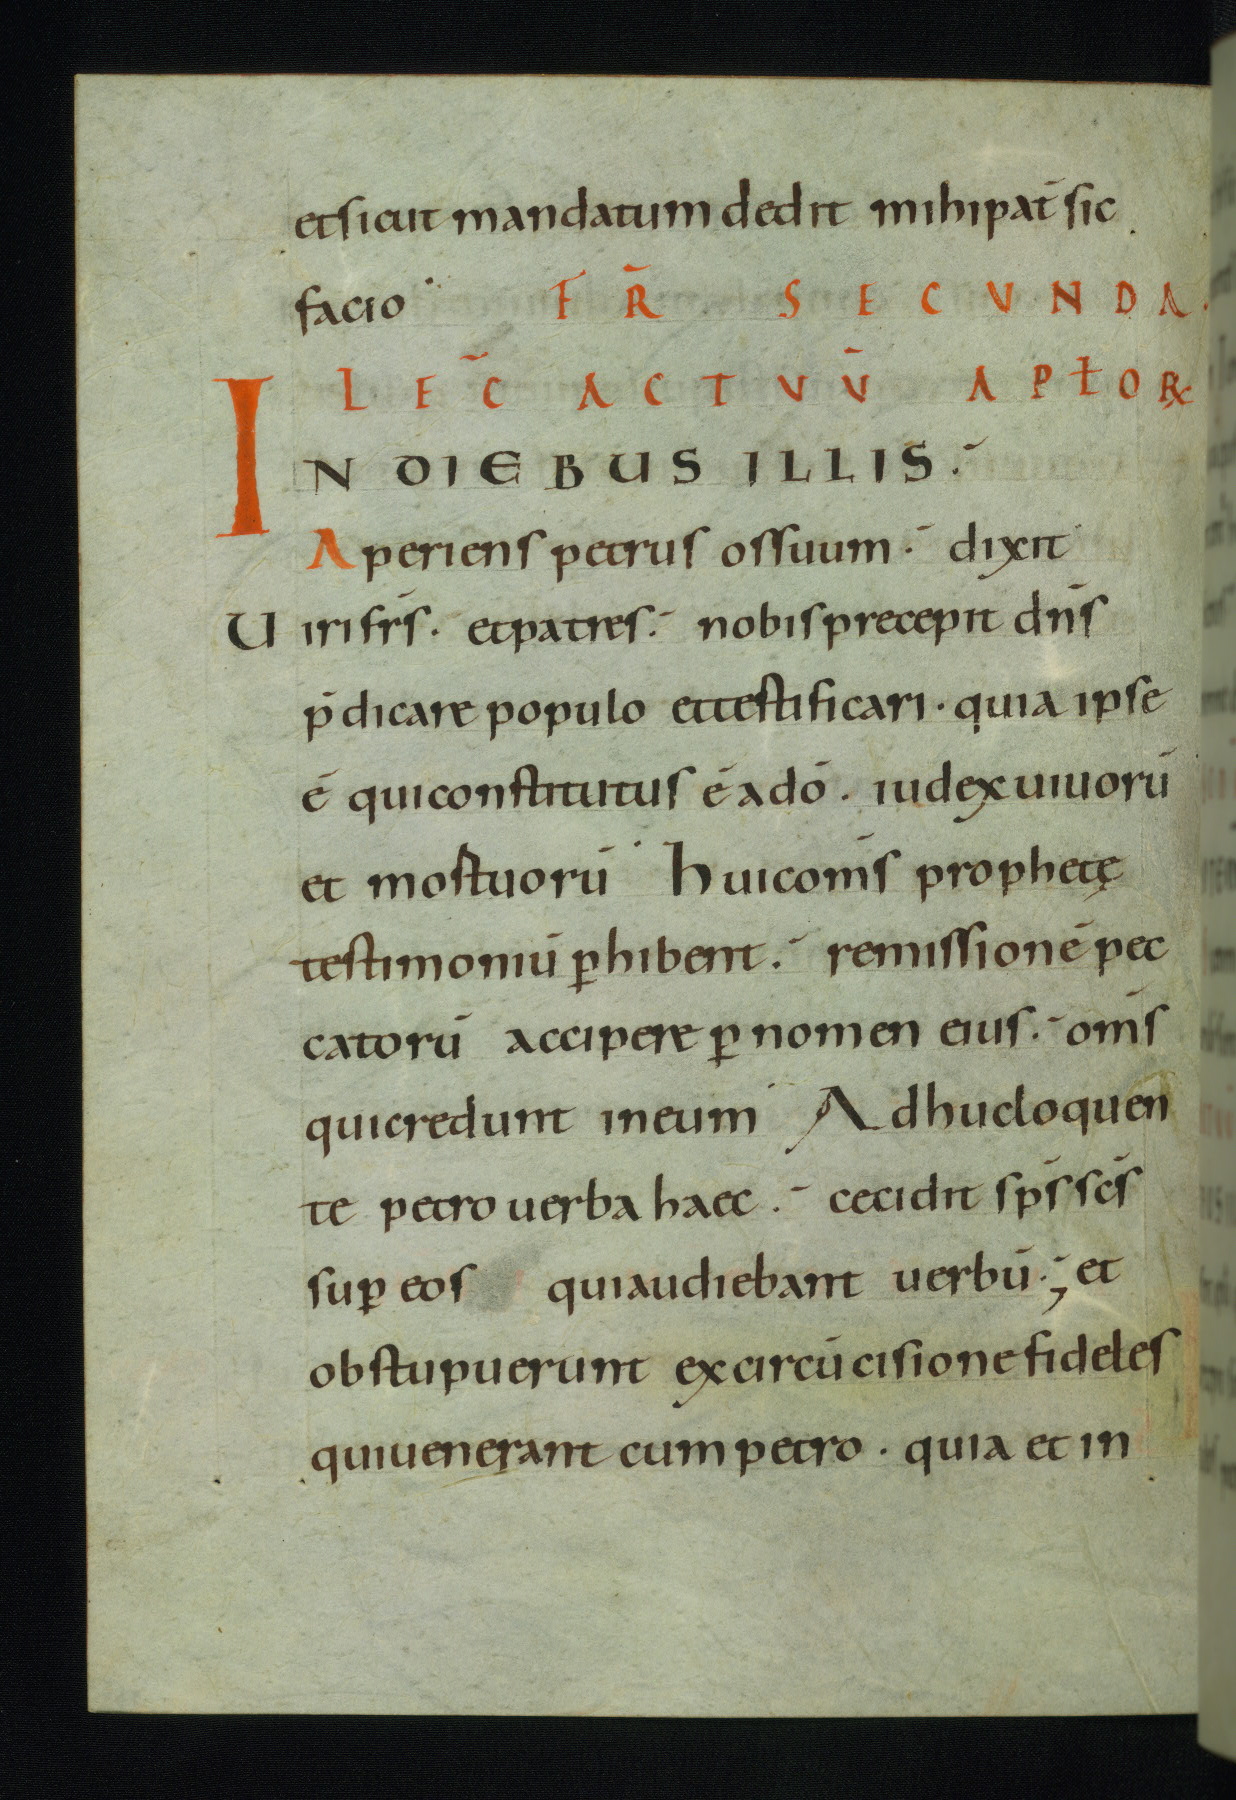 et sicut mandatum dedit mihi pat̄ sic
facio FR̄ SECUNDA.
LEC̄ ACTUŪ APŁOꝶ
IN DIEBUS ILLIS.
Aperiens petrus os suum. dixit
Uiri fr̄s. et patres. nobis precepit dn̄s
p̄dicare populo et testificari. quia ipse
ē qui constitutus ē a dō. iudex uiuorū
et mortuorū Huic om̄s prophetę
testimoniū ꝑhibent. remissionē pec
catorū accipere ꝑ nomen eius. om̄s
qui credunt in eum Adhuc loquen
te petro uerba haec. cecidit sp̄s sc̄s
suꝑ eos qui audiebant uerbū; et
obstupuerunt ex circūcisione fideles
qui uenerant cum petro. quia et in